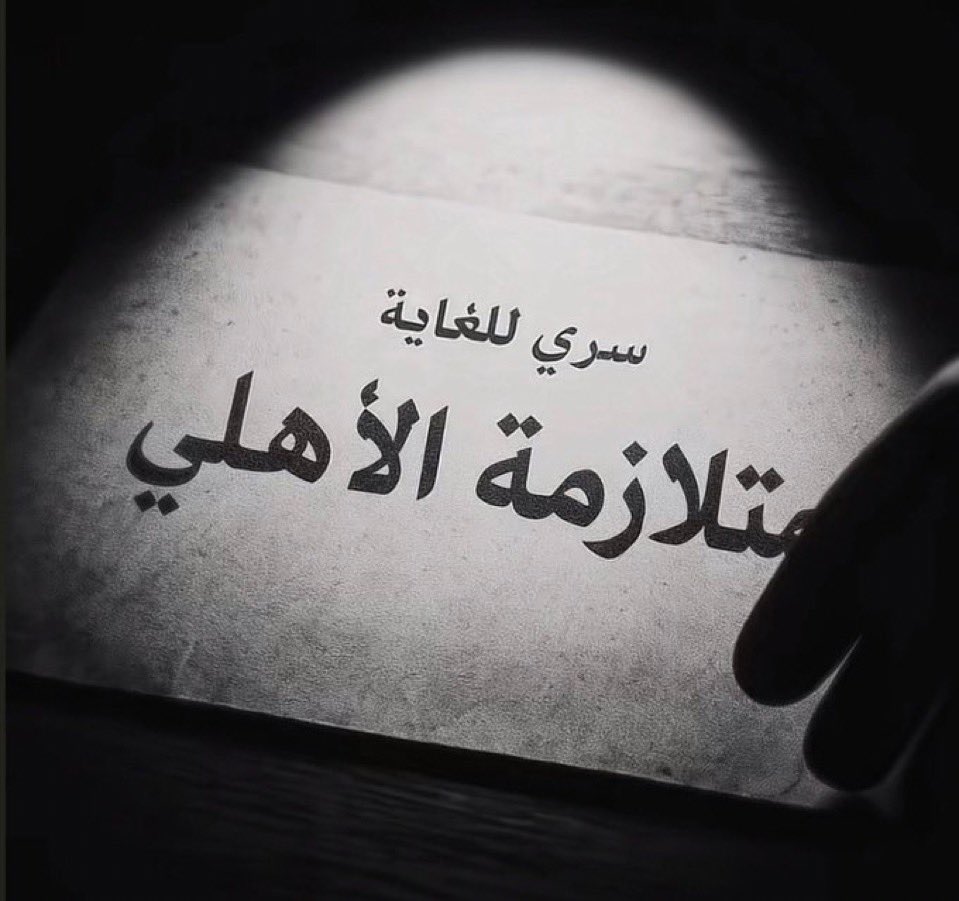 سري للغاية
متلازمة الأهلي